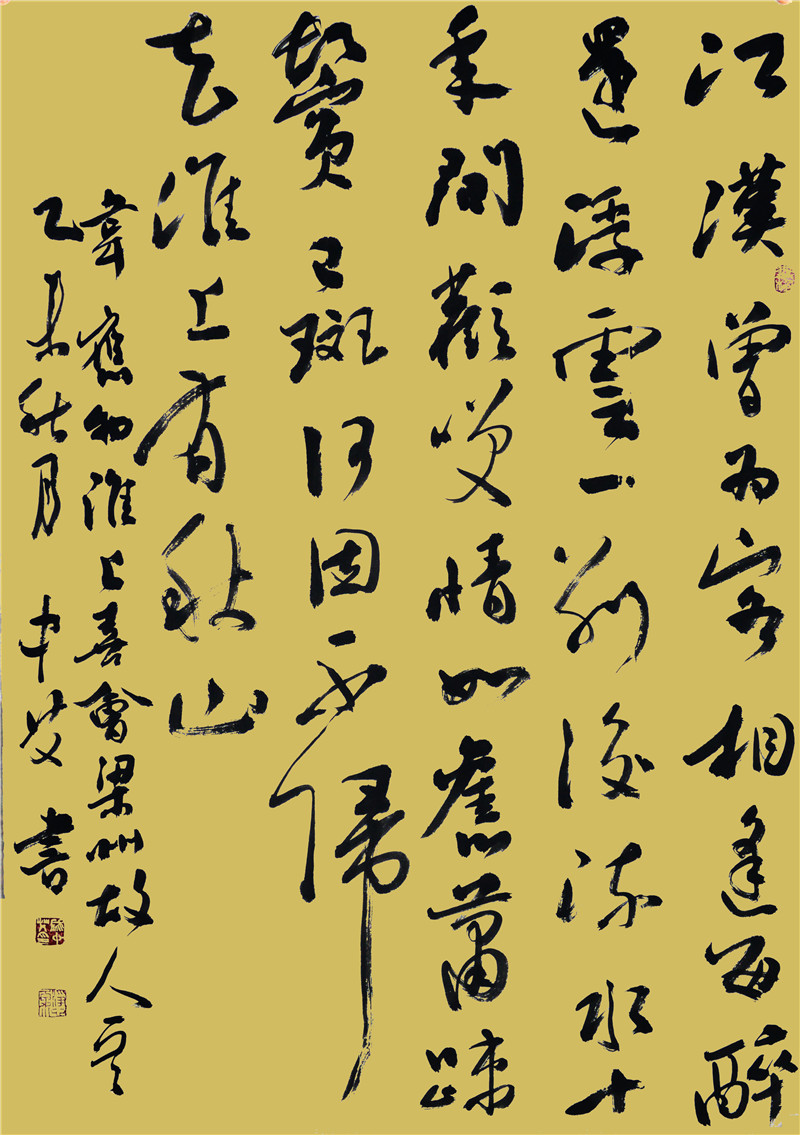 江漢曾为客相逢每醉
還浮雲一别後流水十
年間歡笑情如舊蕭疎
鬢已斑何因不歸
去淮上有秋山
韋應物淮上喜會梁州故人
乙未秋月中艾書